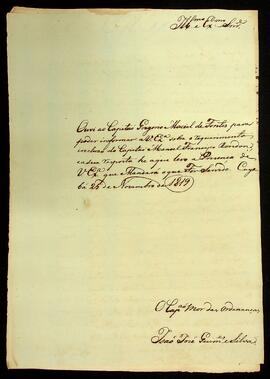 Illmo e Exmo Snr.
Ouvi ao Capitão Gregorio Maciel de Fontes para
poder informar a V. Exa. sobre o requerimento
incluso do Capitão Manoel Francisco Rondon,
e a sua reposta he a que levo a Prezença de
V Exa. que Mandará o que For Servido. Cuya
bá 26 de Novembro de 1819
O Capam Mor das Ordenanças
João José Guimes e Silva